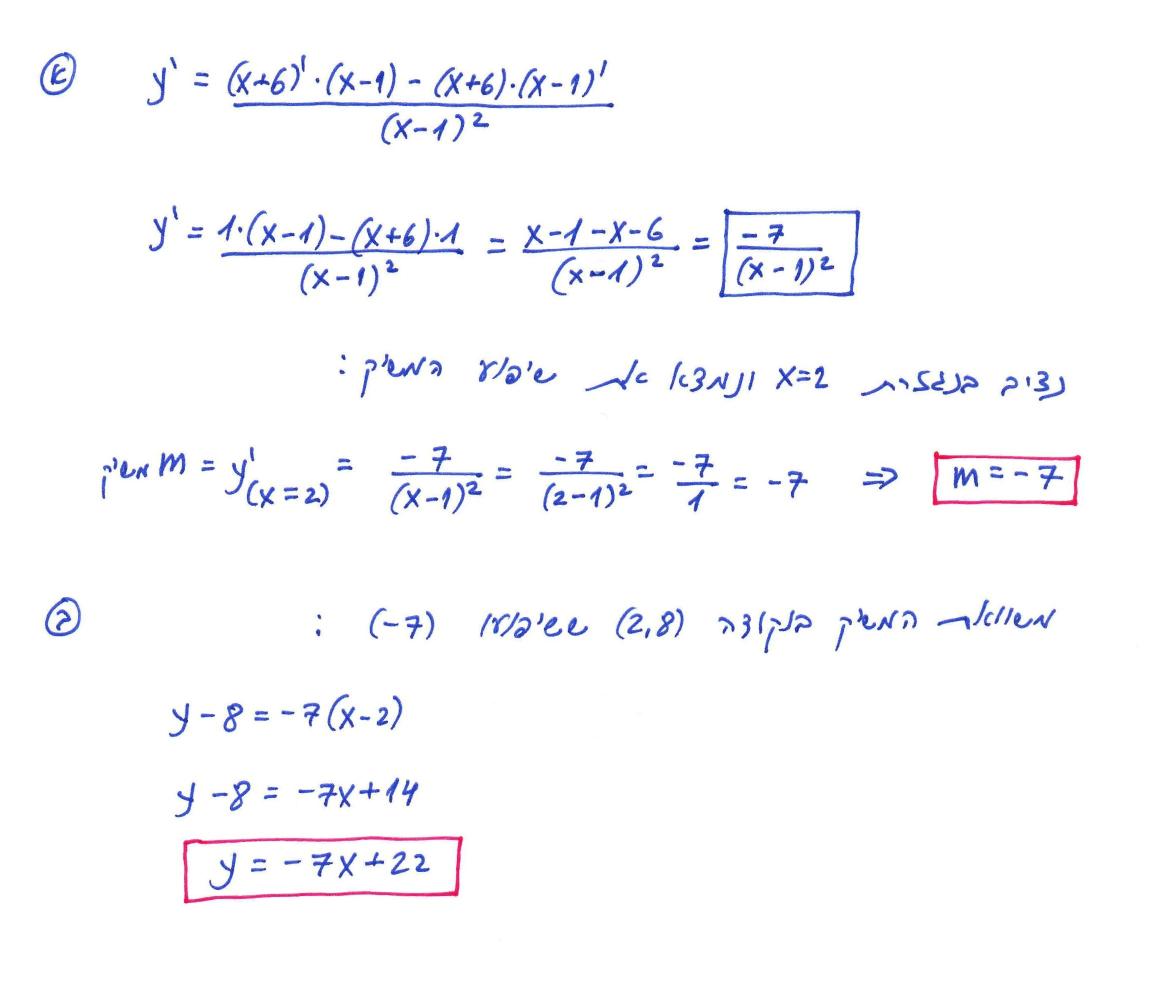 א y' = (x+6)'·(x-1) - (x+6)·(x-1)' / (x-1)²
y' = 1·(x-1)-(x+6)·1 / (x-1)² = x-1-x-6 / (x-1)² = -7 / (x-1)²
נציב בנגזרת x=2 ונמצא את שיפוע המשיק :
m משיק = y'(x=2) = -7 / (x-1)² = -7 / (2-1)² = -7 / 1 = -7 ⇒ m = -7
ב משוואת המשיק בנקודה (2,8) ששיפועו (-7) :
y-8 = -7(x-2)
y-8 = -7x+14
y = -7x+22